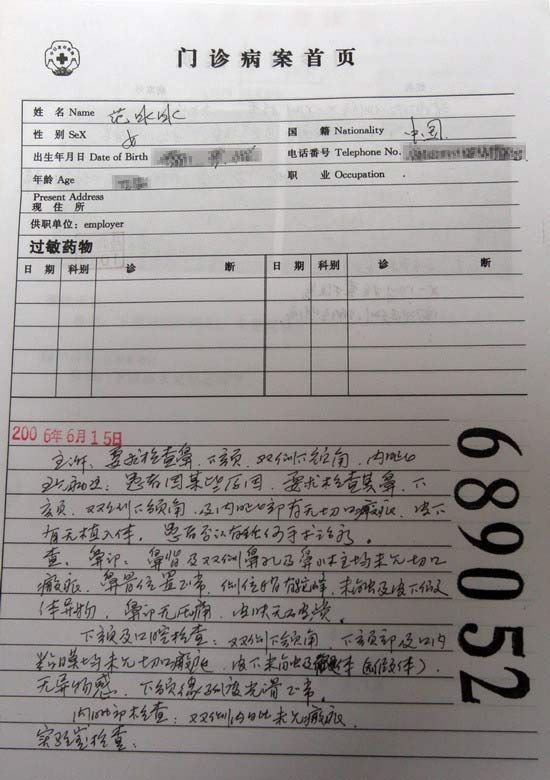 门诊病案首页
姓 名 Name 范冰冰
性 别 SeX 女 国 籍 Nationality 中国
出生年月日 Date of Birth 电话番号 Telephone No.
年龄 Age 职 业 Occupation.
Present Address
现 住 所
供职单位: employer
过敏药物
日 期 科别 诊 断 日 期 科别 诊 断
2006年6月15日
689052
主诉: 要求检查鼻、下颏、双侧下颌角、内眦
患者因某些原因, 要求检查其鼻、下
颏、双侧下颌角、及内眦部有无切口瘢痕, 皮下
有无植入体。患者否认有任何手术诊疗。
查: 鼻部: 鼻背及双侧鼻孔及鼻小柱均未见切口
瘢痕, 鼻骨位置正常, 未触及皮下假
体异物, 鼻部无压痛, 皮肤无
下颏及口腔检查: 双侧下颌角、下颏部及口内
粘膜均未见切口瘢痕, 皮下未触及 体(假体),
无异物感, 下颌缘 光滑正常。
内眦部检查: 双侧内眦未见瘢痕
实验室检查: